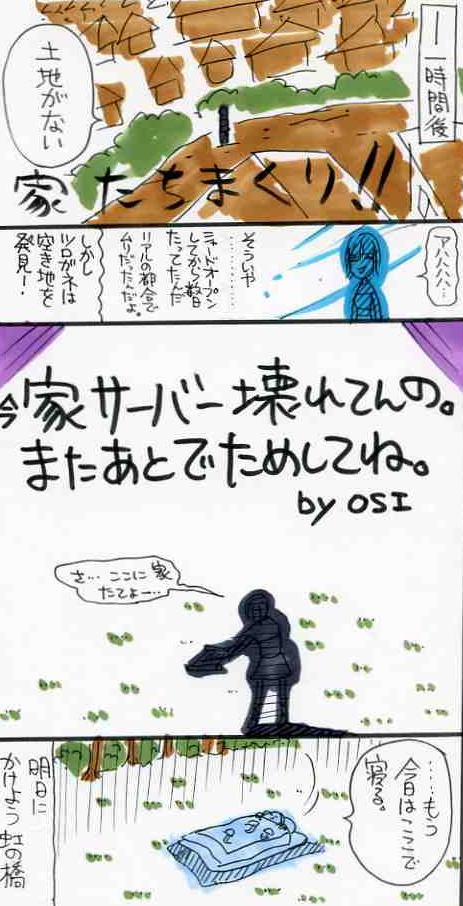 一時間後
土地がない
家たちまくり!!
アハハハ…
そういや
………
シャードオープン
してから数日
たってたんだ
リアルの都合で
ムリだったんだよ。
しかし
ツロガネは
空き地を
発見!
今家サーバー壊れてんの。
またあとでためしてね。
by OSI
さ…ここに家
たてよー…
……もう
今日はここで
寝る。
明日に
かけよう虹の橋